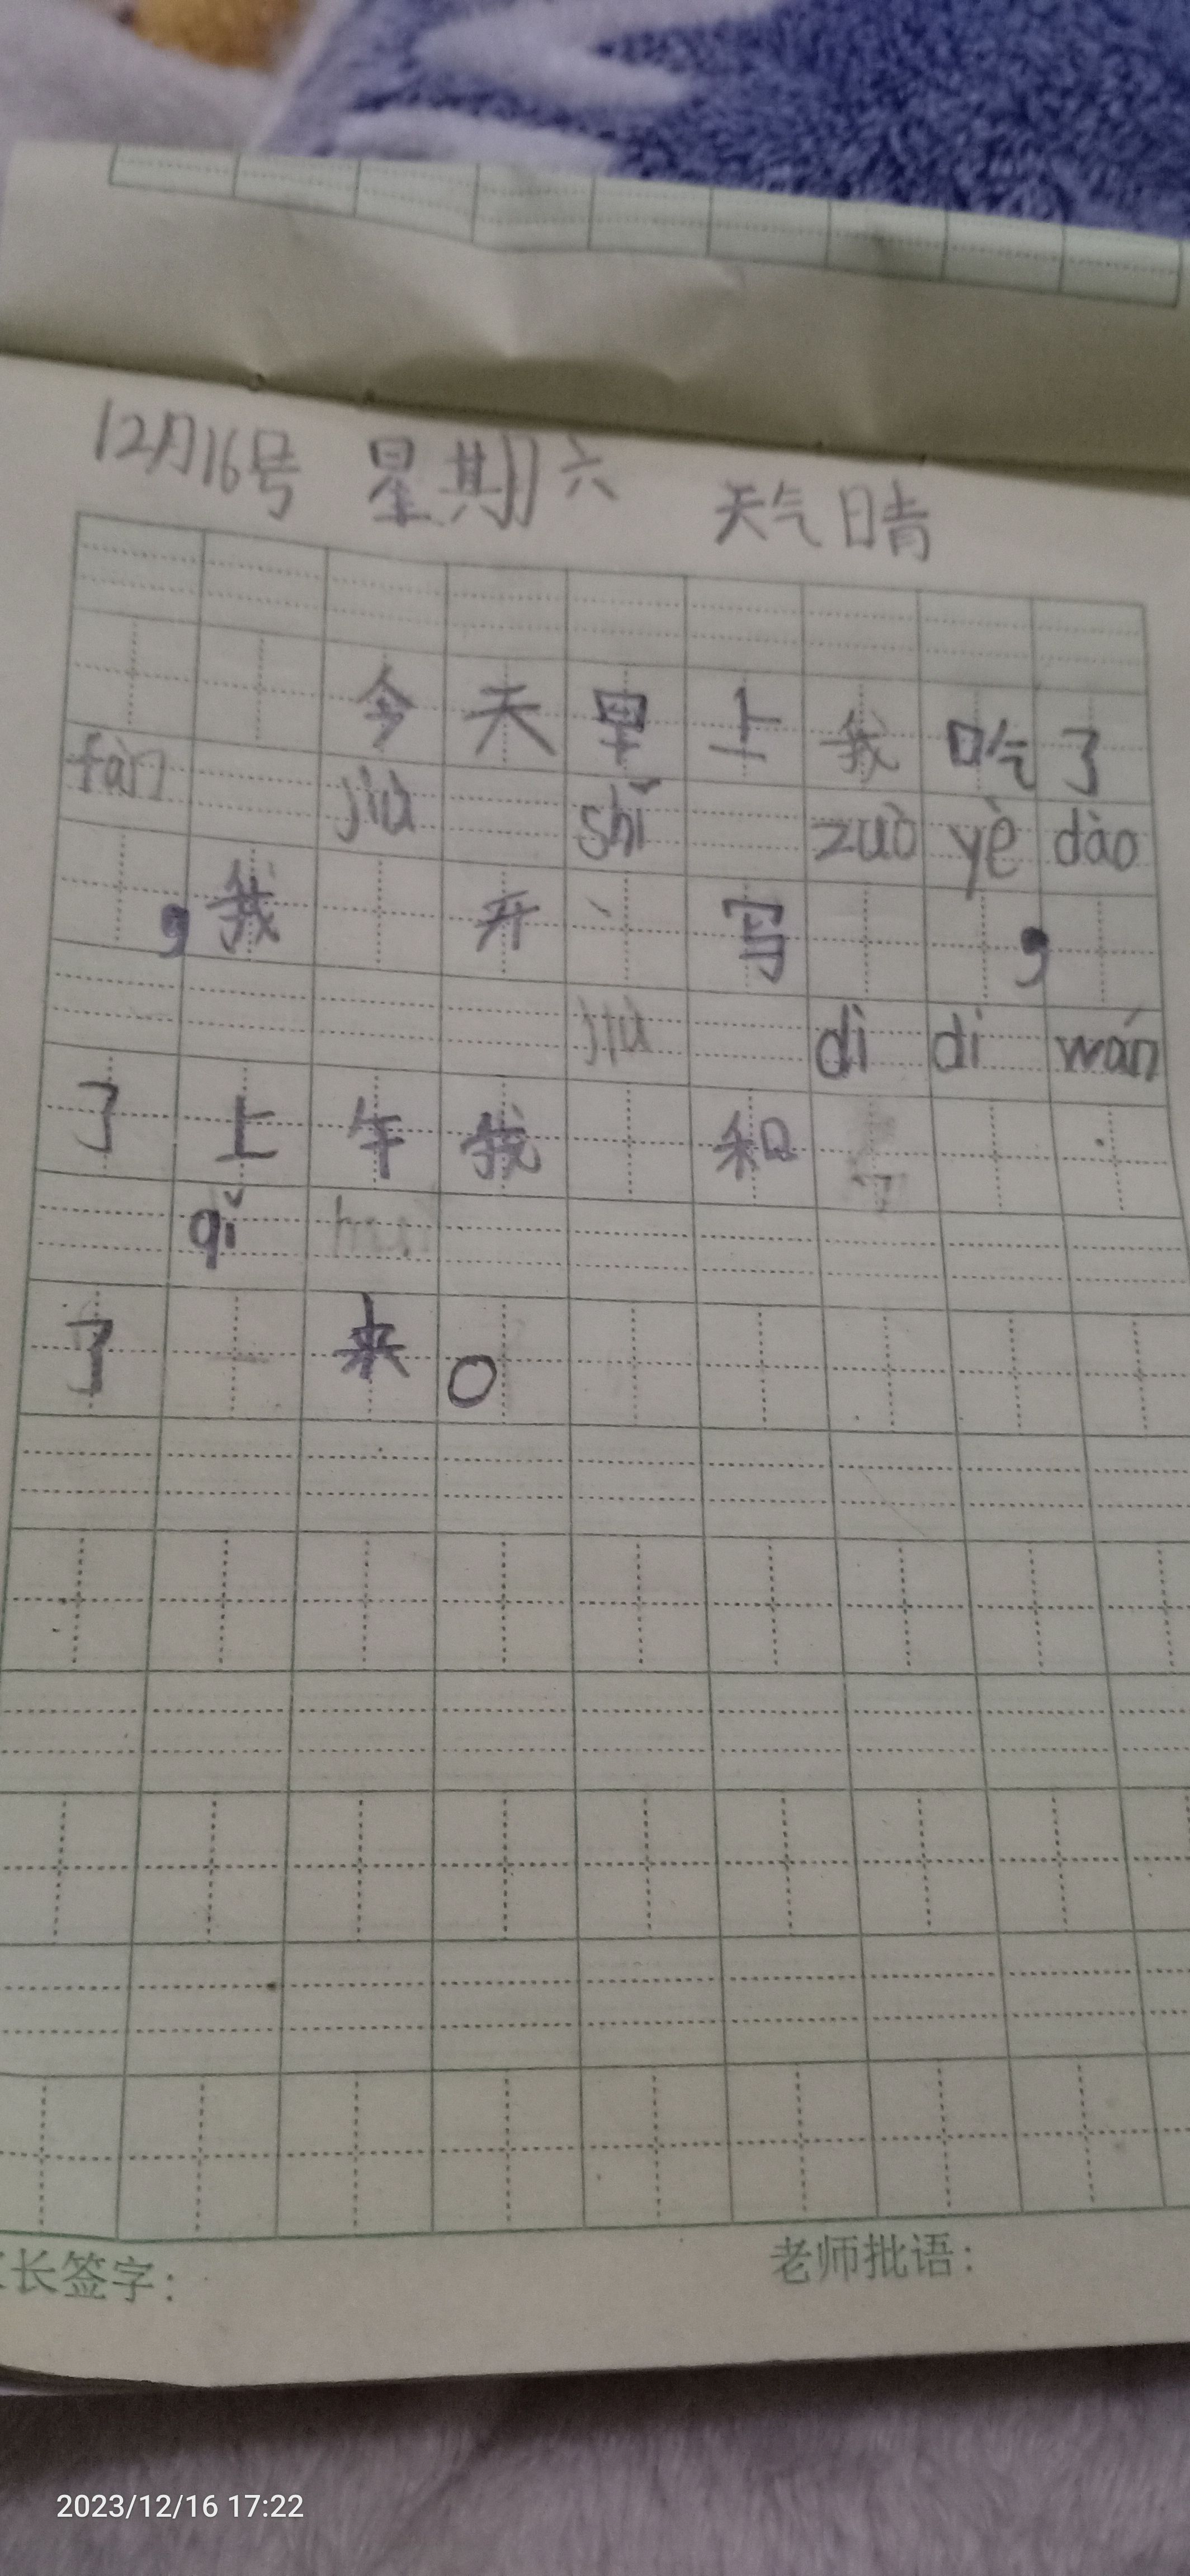 12月16号 星期六 天气晴
今天早上我吃了
fàn jiù shǐ zuò yè dào
,我 开 写 ,
jiù dì di wán
了上午我 和
qǐ
了 来。
长签字: 老师批语:
2023/12/16 17:22